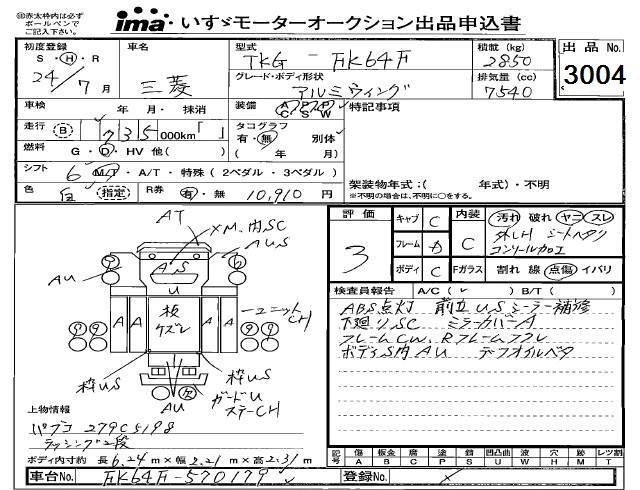 ㊟赤太枠内は必ず
ボールペンで
ご記入下さい。
ima いすゞモーターオークション出品申込書
初度登録 車名 型式 積載 (kg) 出品 No.
S・H・R TKG - FK64F 2850
24/7月 三菱 グレード・ボディ形状 排気量 (cc) 3004
アルミウィング 7540
車検 年 月・抹消 装備 A P P 特記事項
C S W
走行 (B) 735000km「 」 タコグラフ
有・無 別体
燃料 G・D・HV 他( ) ( 年 月)
シフト 6 M/T・A/T・特殊 (2ペダル・3ペダル)
架装物年式:( 年式)・不明
色 白 (指定) R券 有・無 10,910 円
※不明の場合は、不明に○をする。
評価 キャブ C 内装 汚れ 破れ ヤニ スレ
3 フレーム C 外LH シートヘタリ
コンソール加工
ボディ C Fガラス 割れ 線 点傷 イバリ
AT
XM.内SC
AUS
AU
AS
U
A A 板 A A
ケズレ
ユニット
CH
枠US 枠US
AU ガードU
ステーCH
検査員報告 A/C( ) B/T( )
ABS点灯 前立US シーラー補修
下廻りSC ミラーカバーA
フレームCW. Rフレームフフレ
ボディS内AU デフオイルベタ
上物情報
パブコ 279C5198
ラッシング二段
ボディ内寸約 長 6.24 m×幅 2.21 m×高 2.31 m
記号 傷 板金 腐 塗 錆 凹凸曲 波 穴 跡 レツ割
A B C P S U W H M T
車台No. FK64F-570179 登録No.